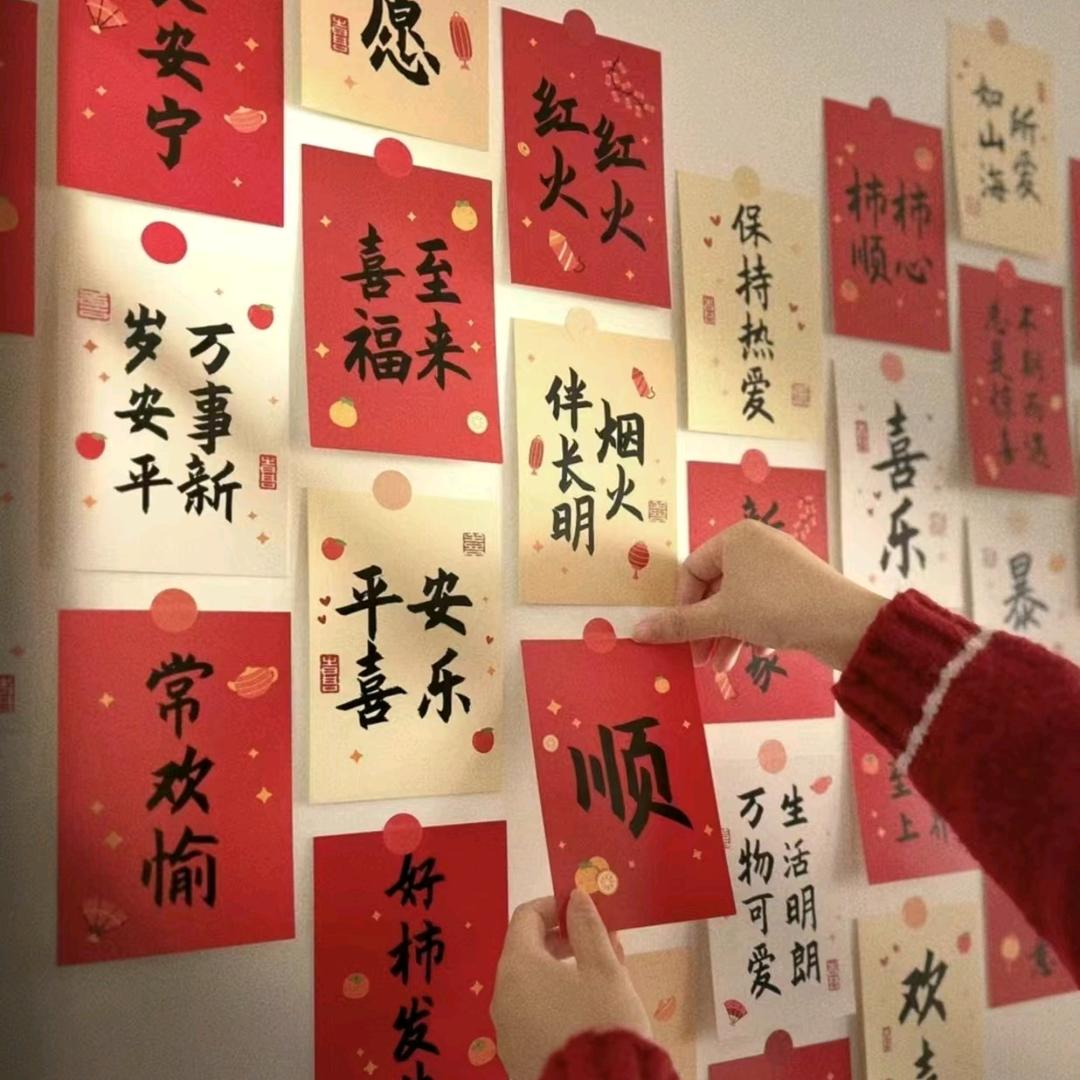 安宁
愿
红红
火火
所爱
如山海
柿柿
顺心
保持热爱
喜至
福来
万事新
岁安平
烟火
伴长明
不期而遇
总是惊喜
喜乐
平安
喜乐
新
暴
常欢愉
顺
生活明朗
万物可爱
至上
好柿发
欢